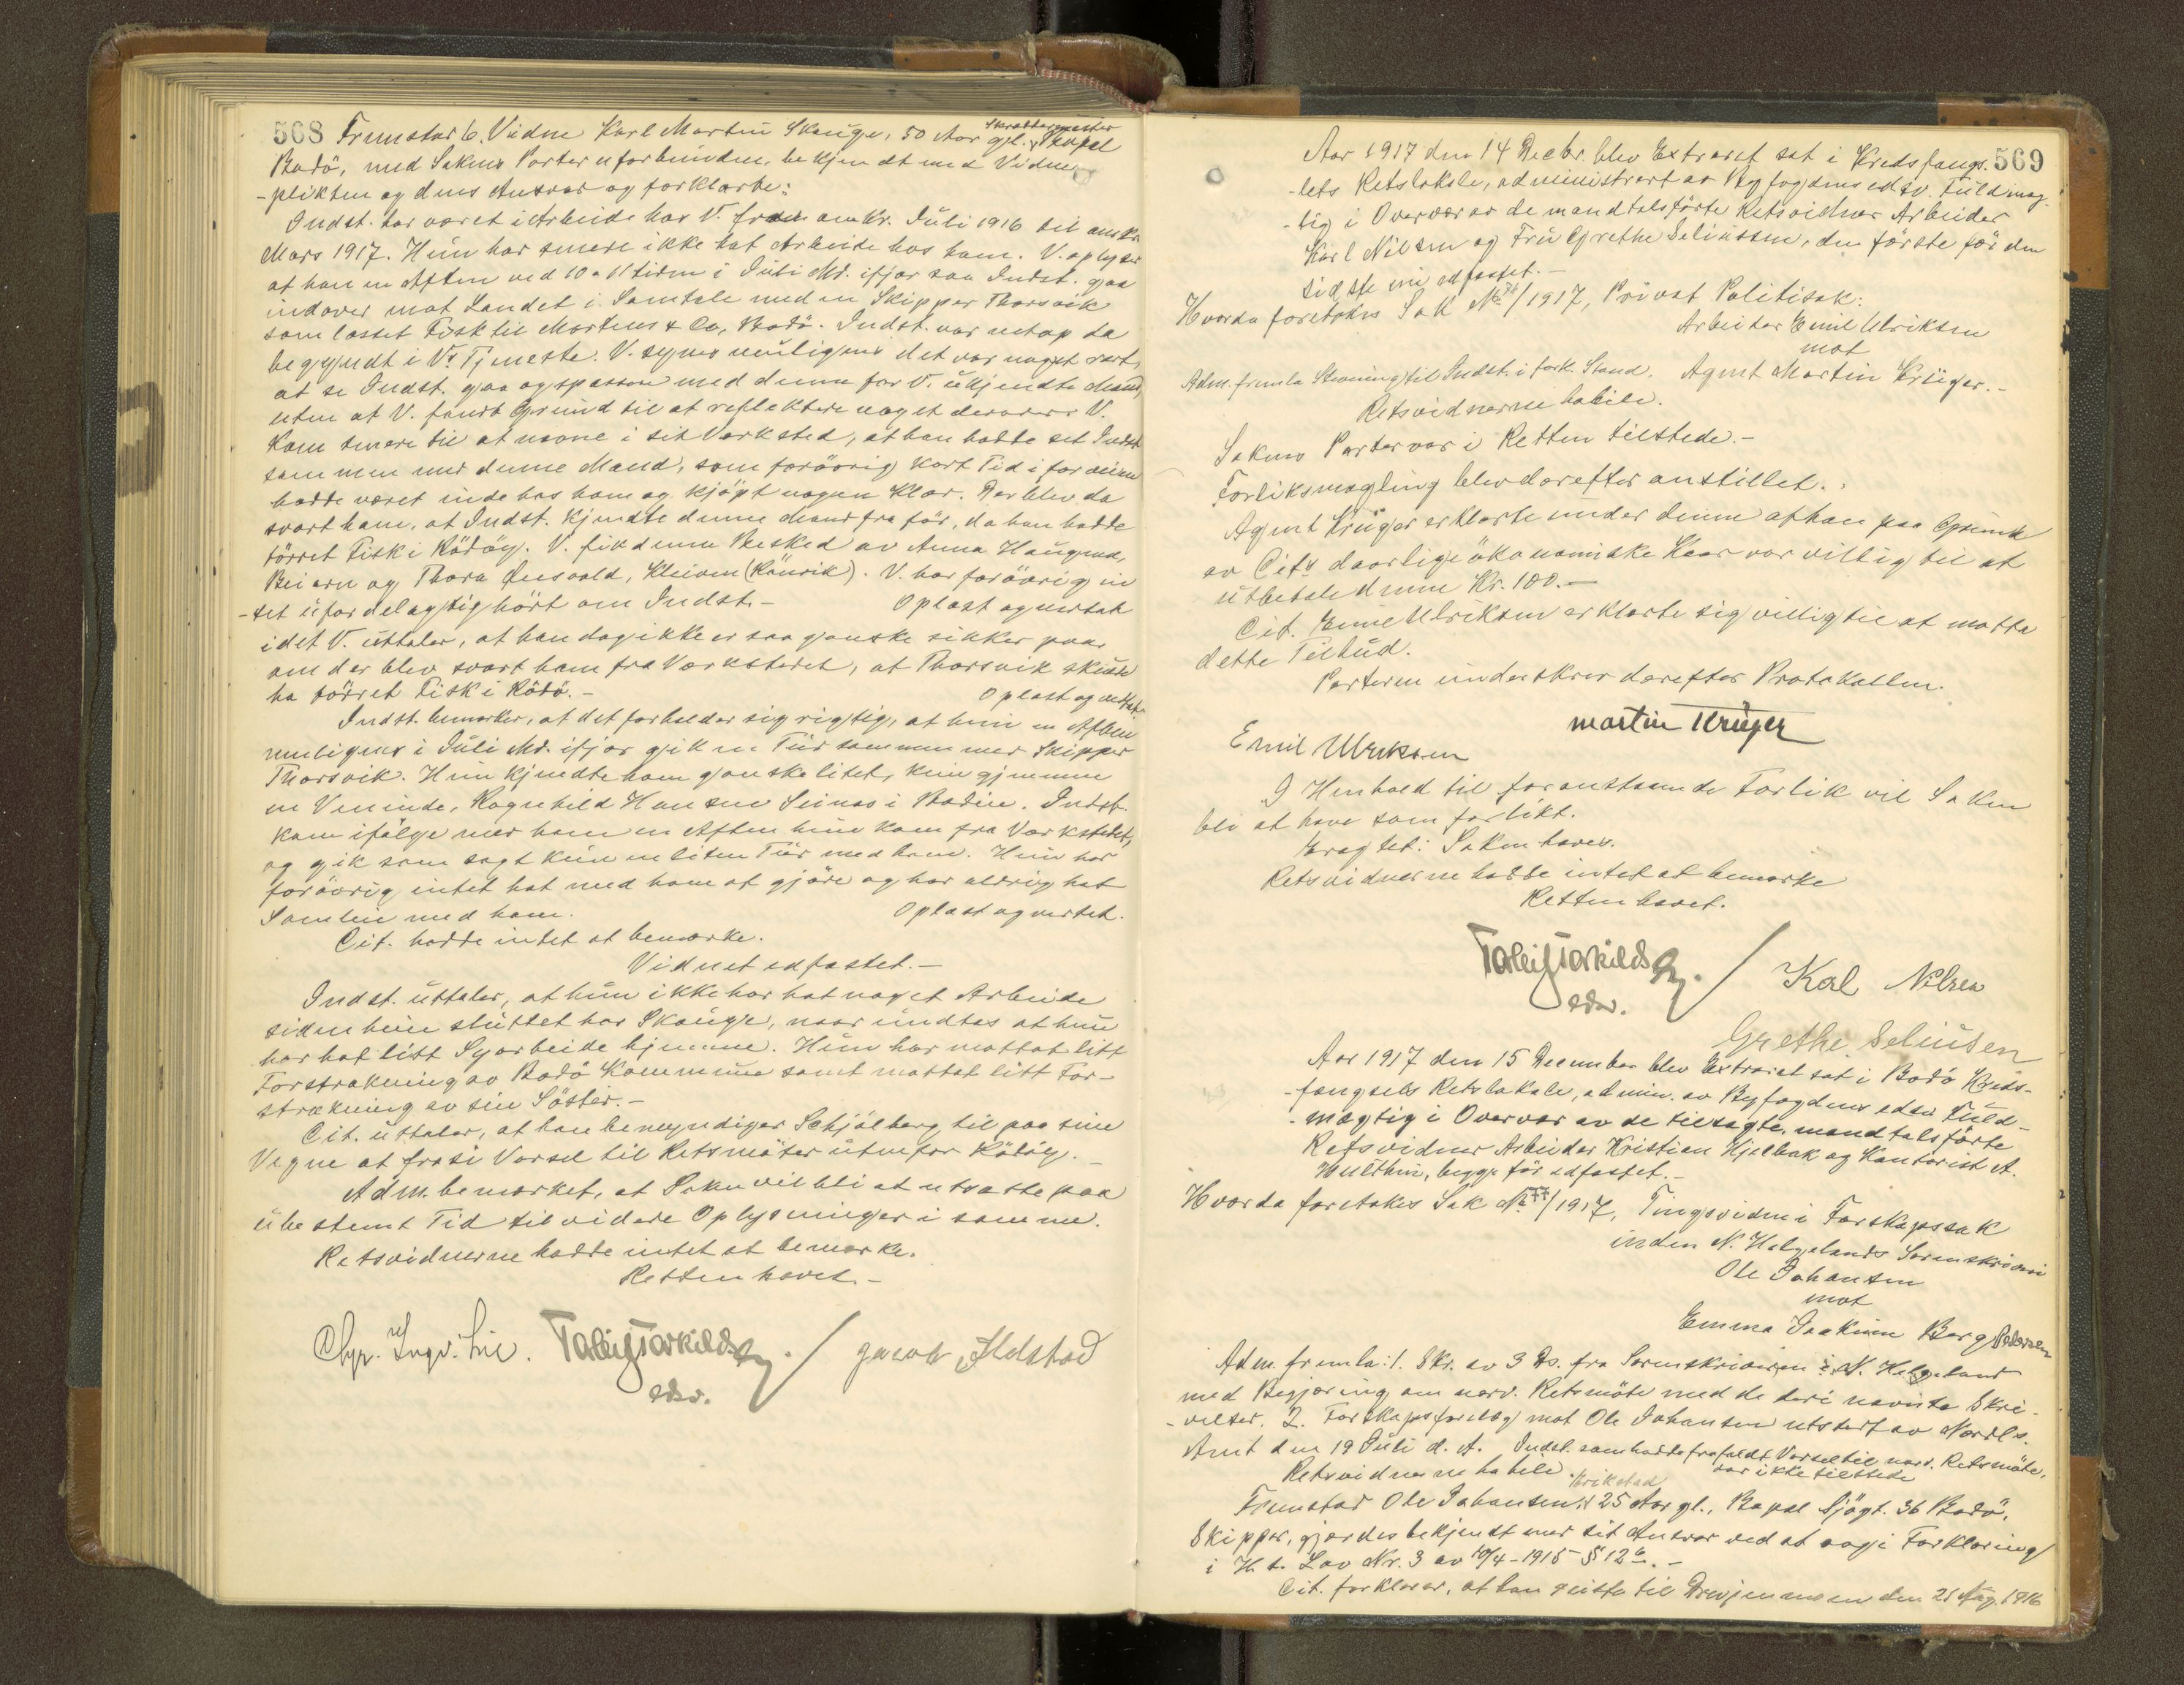 568 Fremstar 6. Vidne Karl Martin Skauge, 50 Aar gl. Skræddermester, Kapel
Bodö, med Sakens Parter uforbunden, bekjendt med Vidne-
-plikten og dens Ansvar og forklarte:
Indst. har været i Arbeide hos V. fra omkr. Juli 1916 til omkr.
Mars 1917. Hun har senere ikke hat Arbeide hos ham. V. oplyser
at han en Aften ved 10 a 11 tiden i Juli Md. ifjor saa Indst. gaa
indover mot Landet i Samtale med en Skipper Thorsvik
som losset Fisk til Martens & Co, Bodö. Indst. var netop da
begyndt i V's Tjeneste. V. synes muligens det var noget rart,
at se Indst. gaa og spassere med denne for V. ukjendte Mand,
uten at V. fandt Grund til at reflektere noget derover. V.
kom senere til at nævne i sit Værksted, at han hadde set Indst.
sammen med denne Mand, som forövrig kort Tid i forveien
hadde været inde hos ham og kjöpt nogen Klær. Der blev da
svart ham, at Indst. kjendte denne Mand fra för, da han hadde
törret Fisk i Rödöy. V. fik denne Besked av Anna Haugmo,
Beiarn og Thora , Kleiven (Rönvik). V. har forövrig in-
-tet ufordelagtig hört om Indst.- Oplæst og vertat
idet V. uttaler, at han dog ikke er saa ganske sikker paa,
om der blev svart ham fra Værkstedet, at Thorsvik skulde
ha törret Fisk i Rödö.- Oplæst og vedtat.
Indst. bemerker, at det forholder sig rigtig, at hun en Aften
muligens i Juli Md. ifjor gik en Tur sammen med Skipper
Thorsvik. Hun kjendte ham ganske litet, kun gjennem
en Veninde, Ragnhild Hansen Seinos i Bodin. Indst.
kom ifölge med ham en Aften hun kom fra Værkstedet,
og gik som sagt kun en liten Tur med ham. Hun har
forövrig intet hat med ham at gjöre og har aldrig hat
Samleie med ham. Oplæst og vertat.
Cit. hadde intet at bemærke.
Vidnet edfæstet.-
Indst. uttaler, at hun ikke har hat noget Arbeide
siden hun sluttet hos Skauge, naar undtas at hun
har hat litt Syarbeide hjemme. Hun har mottat litt
Forstrækning av Bodö Kommune samt mottat litt For-
strækning av sin Söster.-
Cit. uttaler, at han bemyndiger Schjölberg til paa sine
Vegne at frasi Varsel til Retsmöter utenfor Rödöy.-
Adm. bemærket, at Saken vil bli at utsætte paa
ubestemt Tid til videre Oplysninger i samme.
Retsvidnerne hadde intet at bemærke.
Retten hævet.-
Chr. Ingv. Lie. Talleif Torkilds / Jacob Ildstad
edsv.
569
Aar 1917 den 14 Decbr. blev Extraret sat i Kredsfængs-
-lets Retslokale, administrert av Byfogdens edsv. Fuldmæg-
-tig i Overvær av de mandtalsförte Retsvidner Arbeider
Karl Nilsen og Fru Grethe Seliussen, den förste för den
sidste nu edfæstet.-
Hvorda foretokes Sak No 76/1917, Privat Politisak:
Arbeider Emil Ulriksen
mot
Adm. fremla Stevning til Indst. i fork. Stand. Agent Martin Krüger.-
Retsvidnerne habile.
Sakens Parter var i Retten tilstede.-
Forliksmægling blev derefter anstillet.
Agent Krüger erklærte under denne at han paa Grund
av Cit's daarlige ökonomiske Kaar var villig til at
utbetale denne Kr. 100.-
Cit. Emil Ulriksen erklærte sig villig til at motta
dette Tilbud.
Parterne underskrev derefter Protokollen.
Martin Krüger
Emil Ulriksen
I Henhold til foranstaaende Forlik vil Saken
bli at hæve som forlikt.
Eragtet: Saken hæves.
Retsvidnerne hadde intet at bemærke
Retten hævet.
Talleif Torkilds / Karl Nilsen
edsv.
Grethe Seliusen
Aar 1917 den 15 December blev Extraret sat i Bodö Kreds-
-fængsels Retslokale, admin. av Byfogdens edsv. Fuld-
-mægtig i Overvær av de tilsagte, mandtalsförte
Retsvidner Arbeider Kristian Hjelbak og Kontorist A.
Hulthin, begge för edfæstet.-
Hvorda foretokes Sak No 77/1917, Tingsvidne i Farskapssak
inden N. Helgelands Sorenskriveri
Ole Johansen
mot
Emma Joakime Berg Pedersen
Adm. fremla: 1. Skr. av 3 ds. fra Sorenskriveren i N. Helgeland
med Begjæring om nærv. Retsmöte med de deri nævnte Skri-
-velser. 2. Farskapsforelæg mot Ole Johansen utstedt av Nordl.
Amt den 19 Juli d. A. Indst. som hadde frafaldt Varsel til nærv. Retsmöte,
var ikke tilstede
Retsvidnerne habile.
Fremstod Ole Johansen, Erikstad 25 Aar gl., Bopæl Sjögt. 36 Bodö,
Skipper, gjordes bekjendt med sit Ansvar ved at avgi Forklaring
i H. t. Lov Nr. 3 av 10/4-1915 § 12 .-
Cit. forklarer, at han reiste til Drevjemoen den 21 Aug. 1916